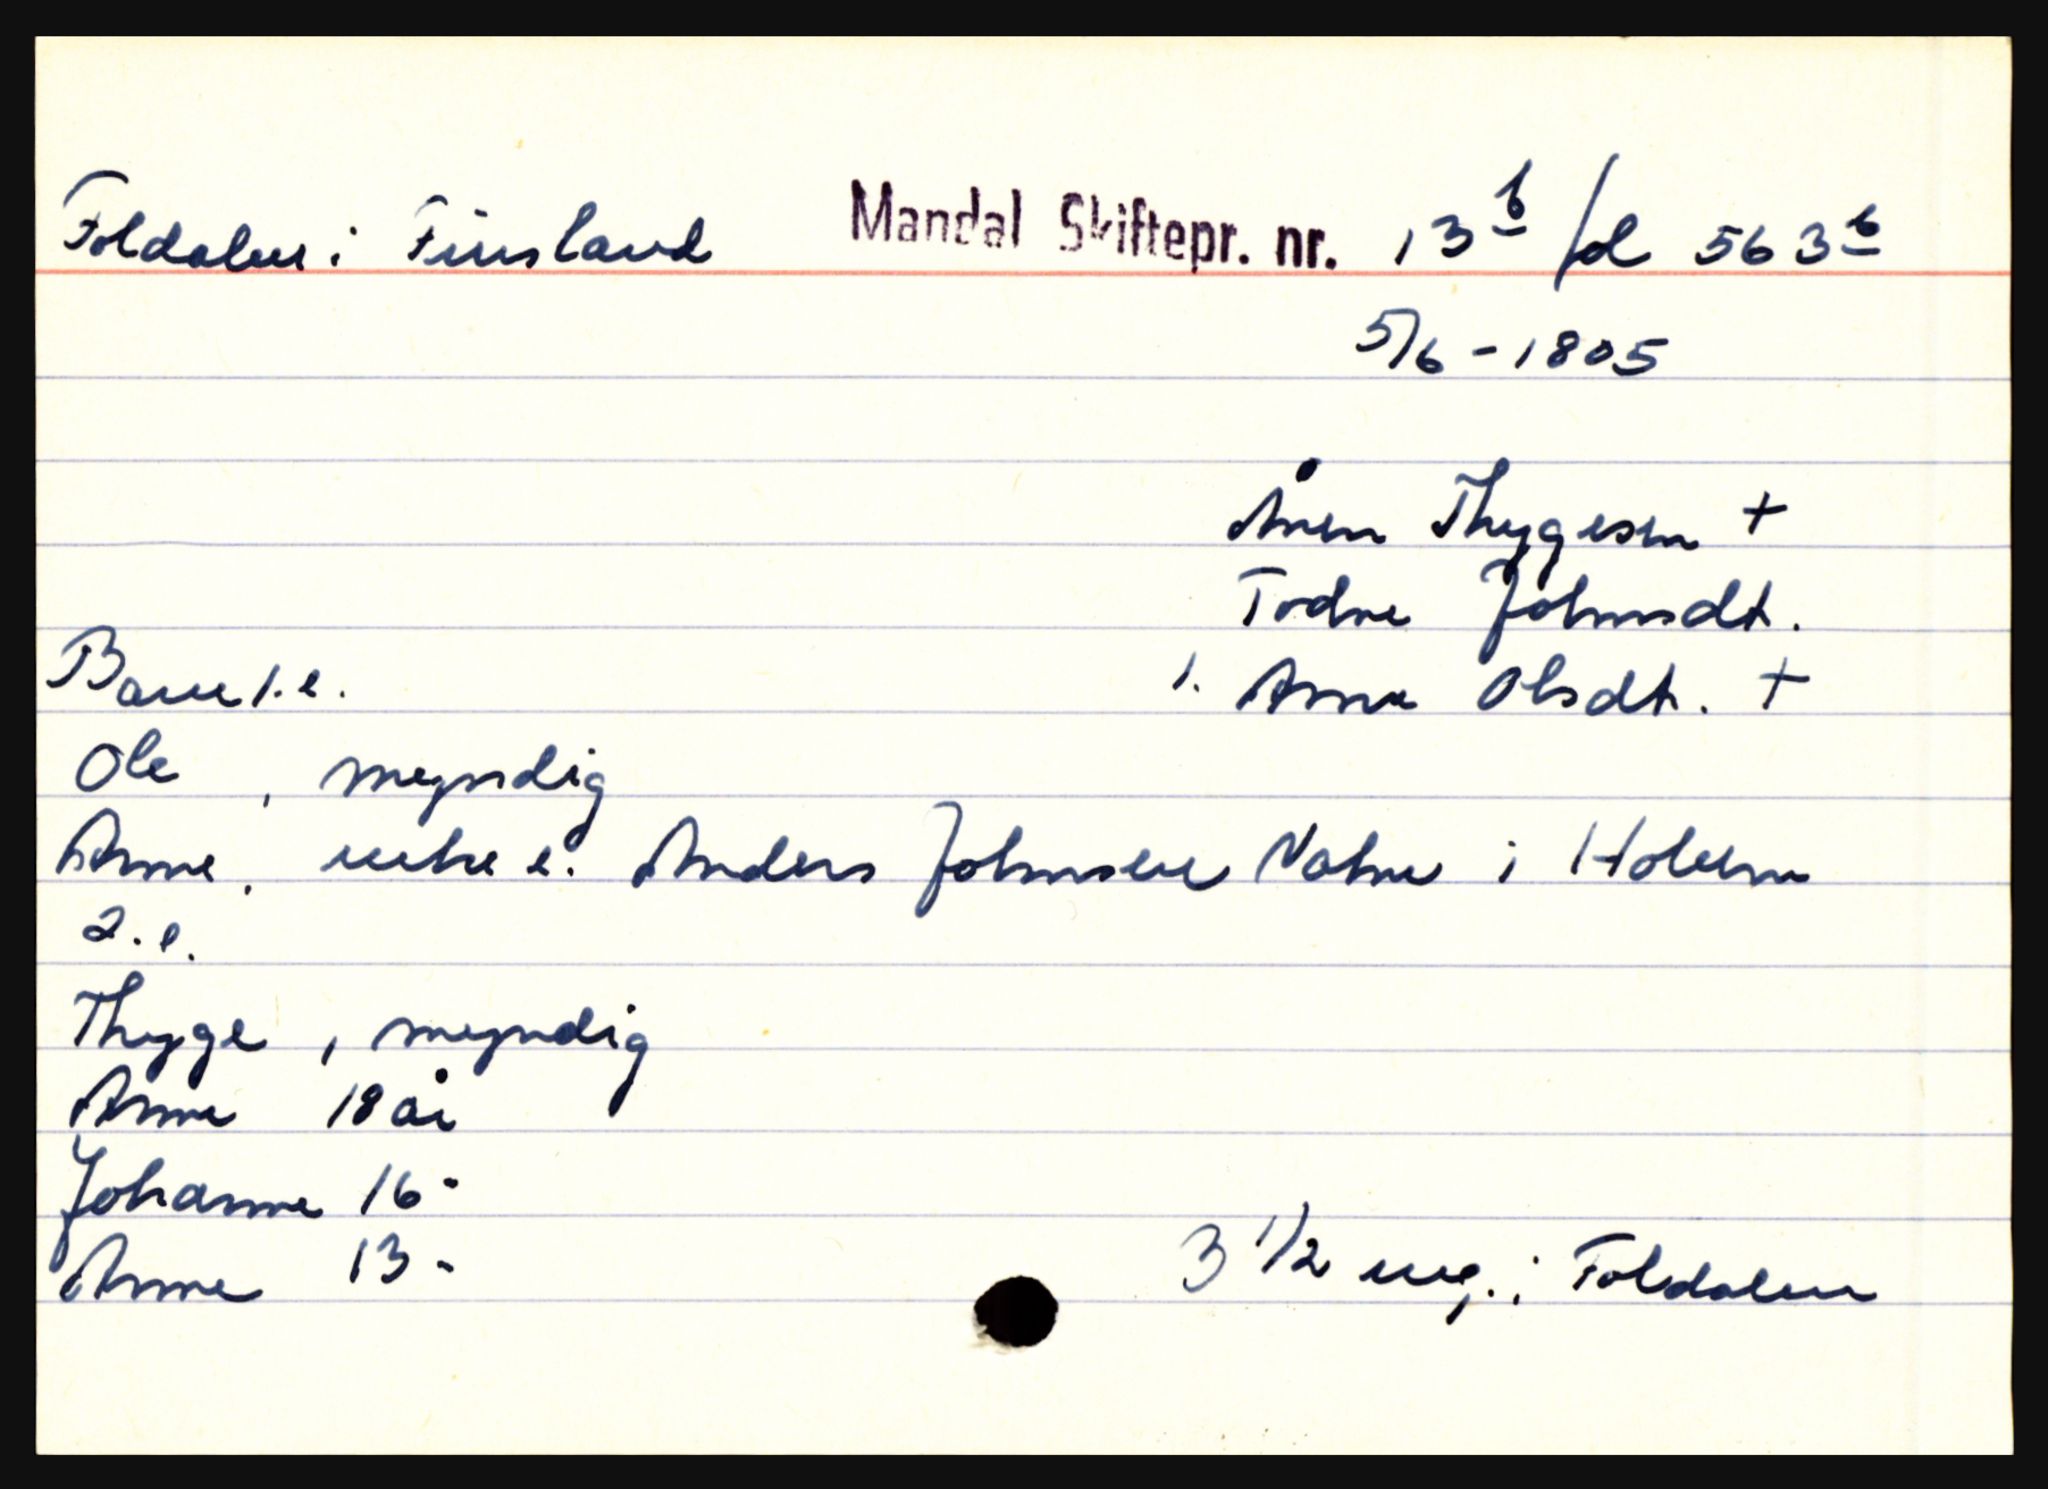 Foldalen i Finsland Mandal Skiftepr. nr. 13b fol 563b
5/6 - 1805
Ånen Thygesen +
Todne Johnsdt.
Barn 1. e. 1. Anne Olsdt. +
Ole , myndig
Anne, enke e. Anders Johnsen i Holum
2. e.
Thyge , myndig
Anne 18 år
Johanne 16 -
Anne 13 - 3 1/2 eng. i Foldalen